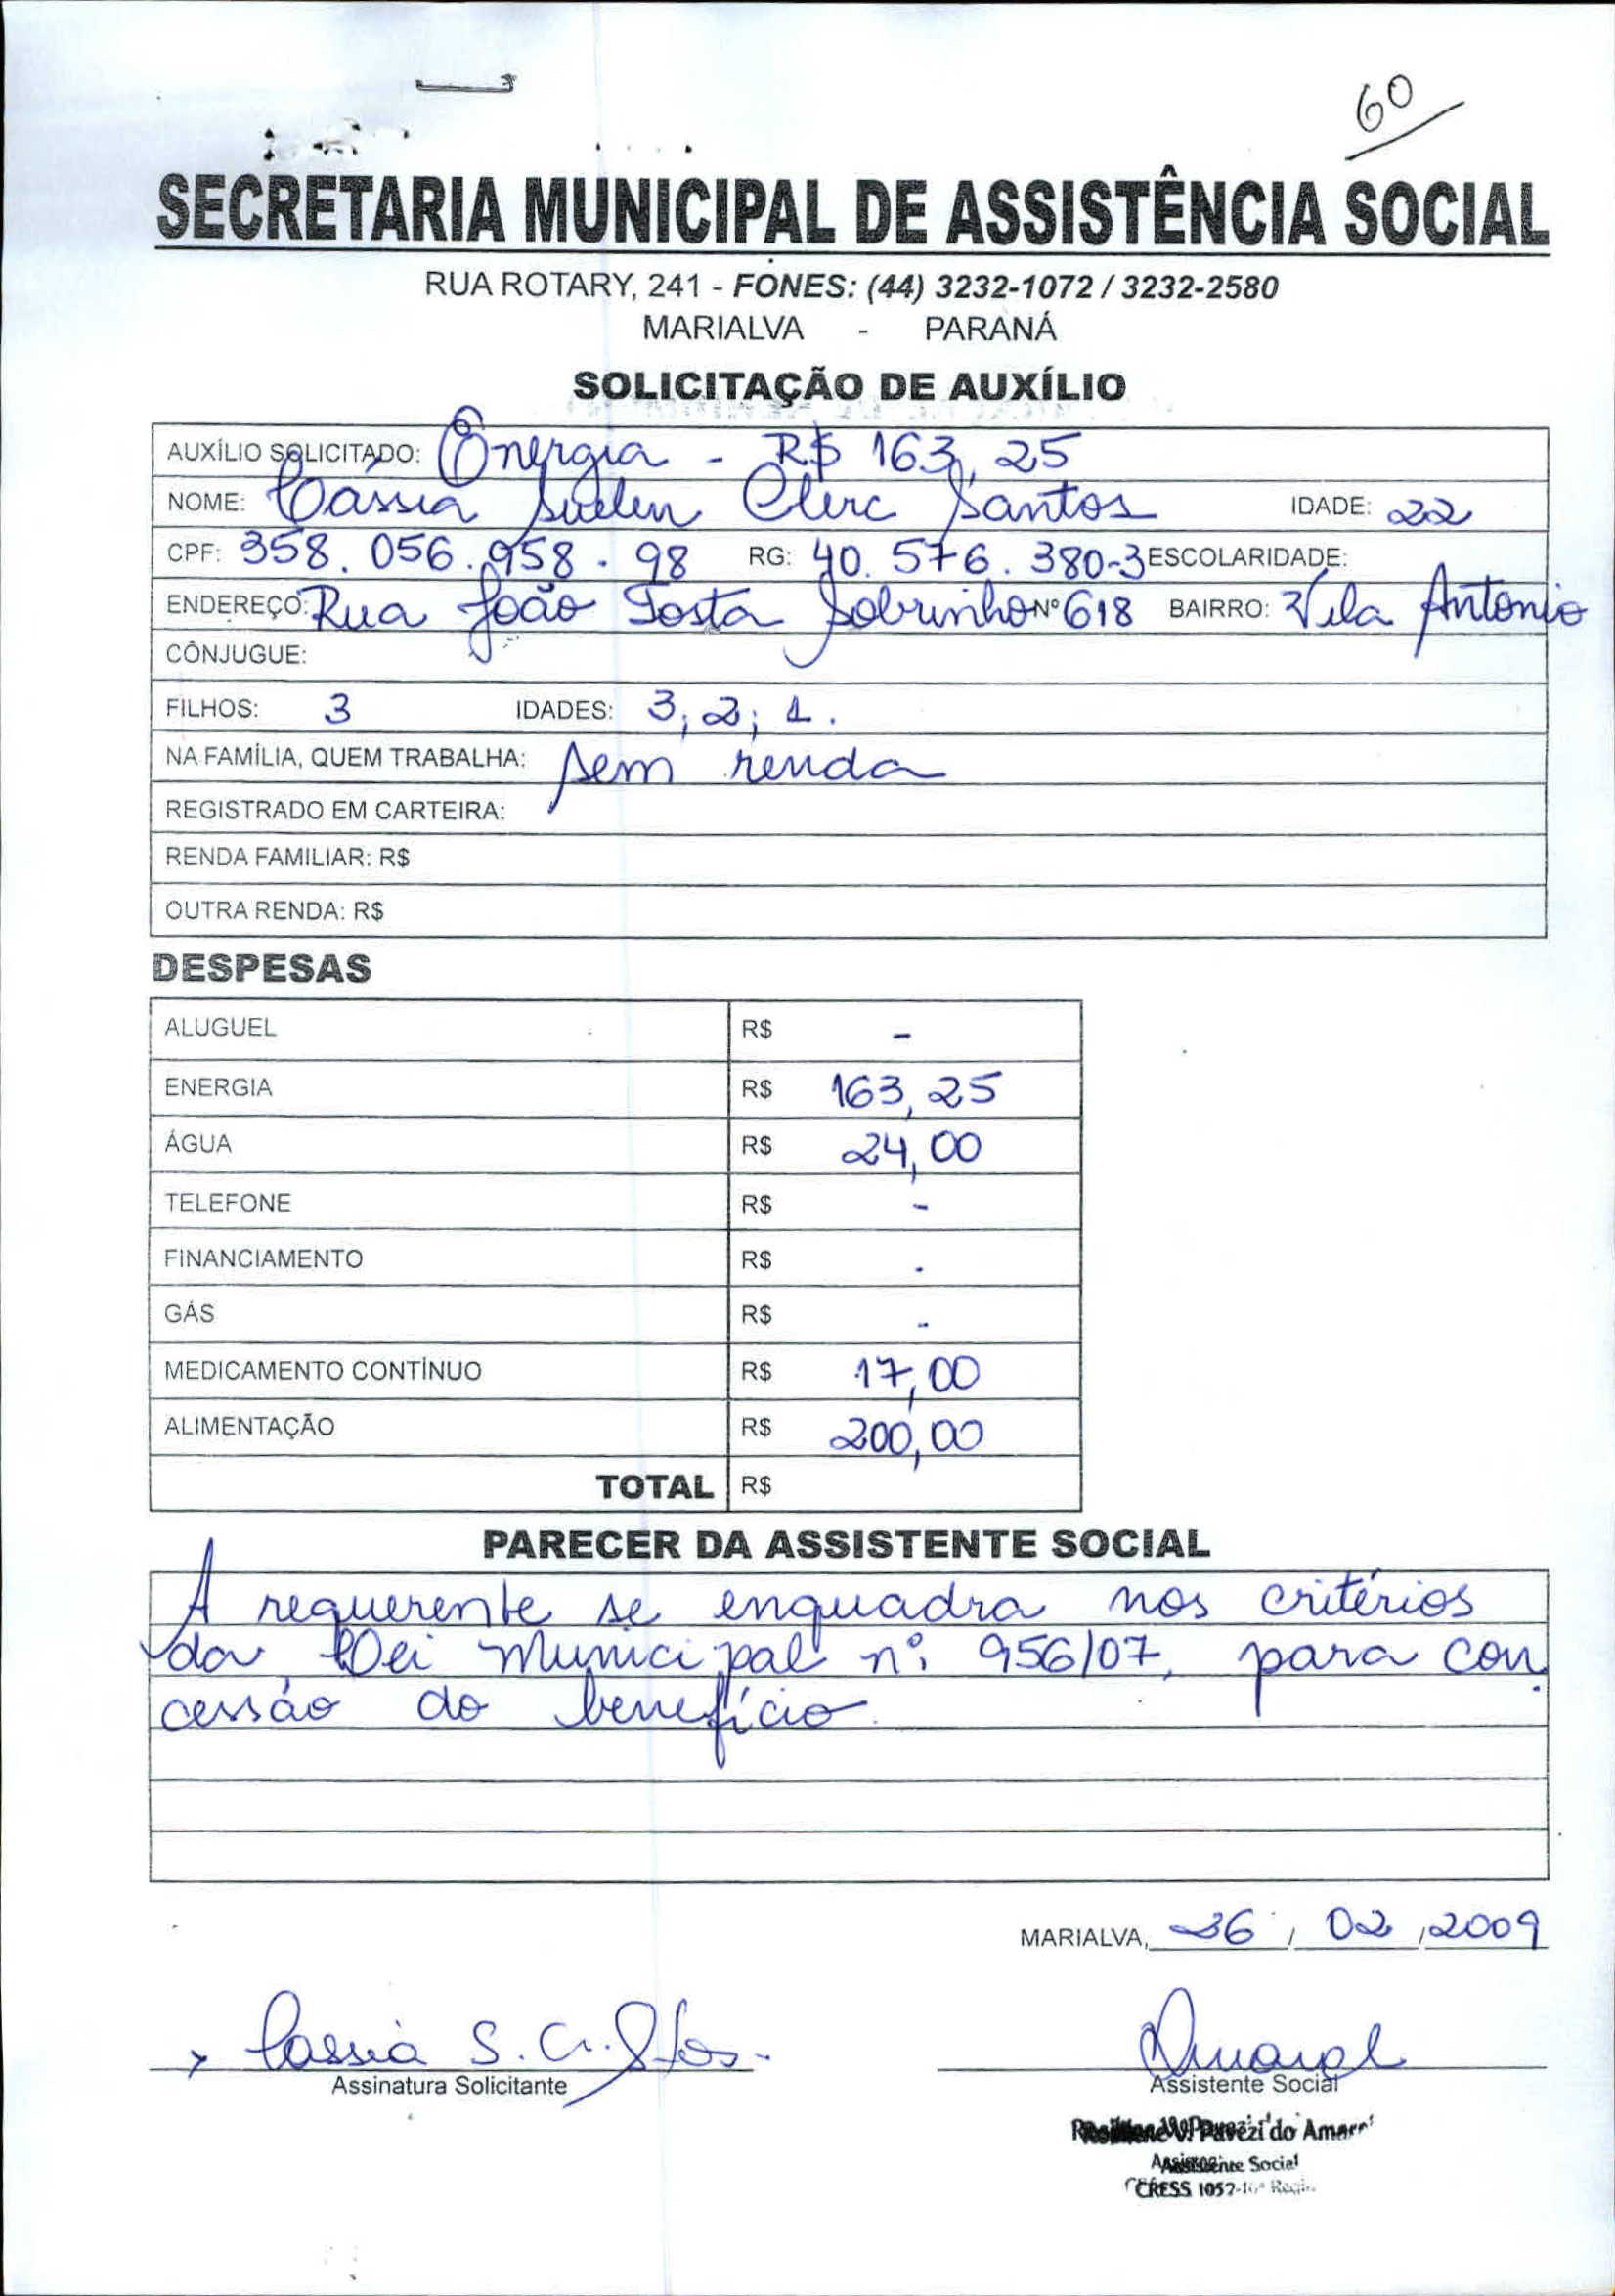 60
SECRETARIA MUNICIPAL DE ASSISTÊNCIA SOCIAL
RUA ROTARY, 241 - FONES: (44) 3232-1072 / 3232-2580
MARIALVA - PARANÁ
SOLICITAÇÃO DE AUXÍLIO
AUXÍLIO SOLICITADO: Energia - R$ 163,25
NOME: Cássia Suelen Clerc Santos IDADE: 22
CPF: 358.056.958-98 RG: 40.576.380-3 ESCOLARIDADE:
ENDEREÇO: Rua João Tosta Sobrinho Nº 618 BAIRRO: Vila Antonio
CÔNJUGUE:
FILHOS: 3 IDADES: 3; 2; 1.
NA FAMÍLIA, QUEM TRABALHA: sem renda
REGISTRADO EM CARTEIRA:
RENDA FAMILIAR: R$
OUTRA RENDA: R$
DESPESAS
ALUGUEL R$ -
ENERGIA R$ 163,25
ÁGUA R$ 24,00
TELEFONE R$ -
FINANCIAMENTO R$ -
GÁS R$ -
MEDICAMENTO CONTÍNUO R$ 17,00
ALIMENTAÇÃO R$ 200,00
TOTAL R$
PARECER DA ASSISTENTE SOCIAL
A requerente se enquadra nos critérios
da Lei Municipal nº 956/07, para con
cessão do benefício.
MARIALVA, 26 / 02 / 2009
Cassia S. C. Stos. Amaral
Assinatura Solicitante Assistente Social
V. Pavezi do Amaral
Assistente Social
CRESS 1057